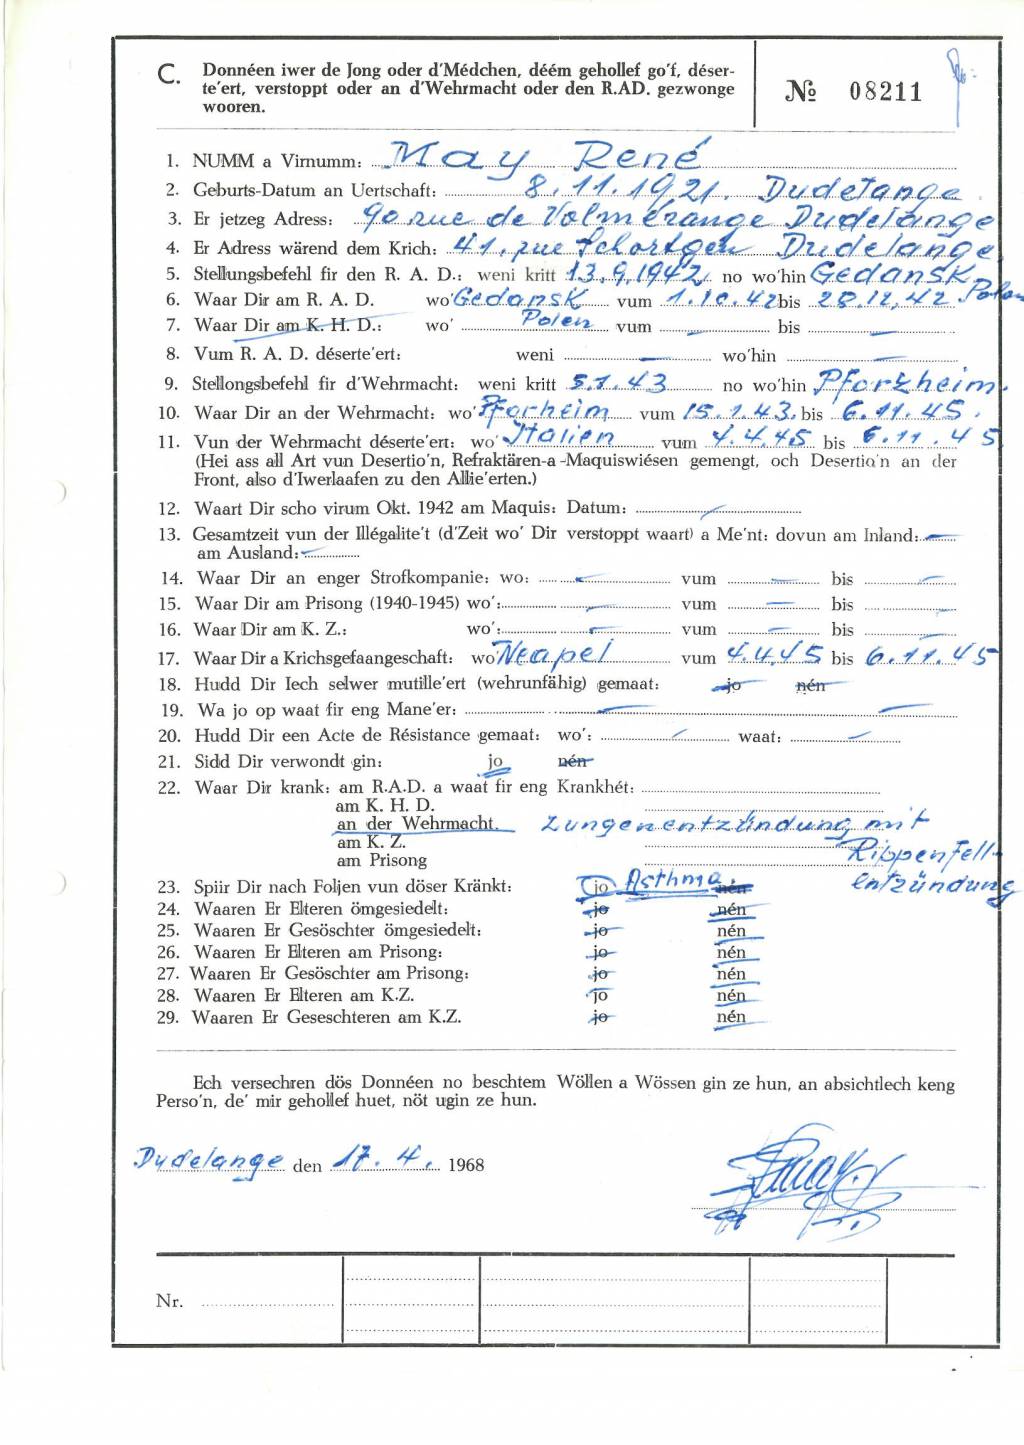 C. Donnéen iwer de Jong oder d'Médchen, déém gehollef go'f, déser-
te'ert, verstoppt oder an d'Wehrmacht oder den R.AD. gezwonge
wooren.
№ 08211
1. NUMM a Virnumm: May René
2. Geburts-Datum an Uertschaft: 8.11.1921. Dudelange
3. Er jetzeg Adress: 90 rue de Volmerange Dudelange
4. Er Adress wärend dem Krich: 41, rue Schortgen Dudelange
5. Stellungsbefehl fir den R. A. D.: weni kritt 13.9.1942 no wo'hin Gedansk
6. Waar Dir am R. A. D. wo' Gedansk vum 1.10.42 bis 28.12.42 Polen
7. Waar Dir am K. H. D.: wo' Polen vum — bis —
8. Vum R. A. D. déserte'ert: weni — wo'hin —
9. Stellongsbefehl fir d'Wehrmacht: weni kritt 5.1.43 no wo'hin Pforzheim.
10. Waar Dir an der Wehrmacht: wo' Pforheim vum 15.1.43. bis 6.11.45.
11. Vun der Wehrmacht déserte'ert: wo' Italien vum 4.4.45 bis 6.11.45
(Hei ass all Art vun Desertio'n, Refraktären-a-Maquiswiésen gemengt, och Desertio'n an der
Front, also d'Iwerlaafen zu den Allie'erten.)
12. Waart Dir scho virum Okt. 1942 am Maquis: Datum: —
13. Gesamtzeit vun der Illégalite't (d'Zeit wo' Dir verstoppt waart) a Me'nt: dovun am Inland: —
am Ausland: —
14. Waar Dir an enger Strofkompanie: wo: — vum — bis —
15. Waar Dir am Prisong (1940-1945) wo': — vum — bis —
16. Waar Dir am K. Z.: wo': — vum — bis —
17. Waar Dir a Krichsgefaangeschaft: wo' Neapel vum 4.4.45 bis 6.11.45
18. Hudd Dir Iech selwer mutille'ert (wehrunfähig) gemaat: jo nén
19. Wa jo op waat fir eng Mane'er: — —
20. Hudd Dir een Acte de Résistance gemaat: wo': — waat: —
21. Sidd Dir verwondt gin: jo nén
22. Waar Dir krank: am R.A.D. a waat fir eng Krankhét:
am K. H. D.
an der Wehrmacht. Lungenentzündung mit
am K. Z. Rippenfell-
am Prisong
23. Spiir Dir nach Foljen vun döser Kränkt: jo Asthma. nén entzündung
24. Waaren Er Elteren ömgesiedelt: jo nén
25. Waaren Er Gesöschter ömgesiedelt: jo nén
26. Waaren Er Elteren am Prisong: jo nén
27. Waaren Er Gesöschter am Prisong: jo nén
28. Waaren Er Elteren am K.Z. jo nén
29. Waaren Er Geseschteren am K.Z. jo nén
Ech versechren dös Donnéen no beschtem Wöllen a Wössen gin ze hun, an absichtlech keng
Perso'n, de' mir gehollef huet, nöt ugin ze hun.
Dudelange den 17.4. 1968
Nr.